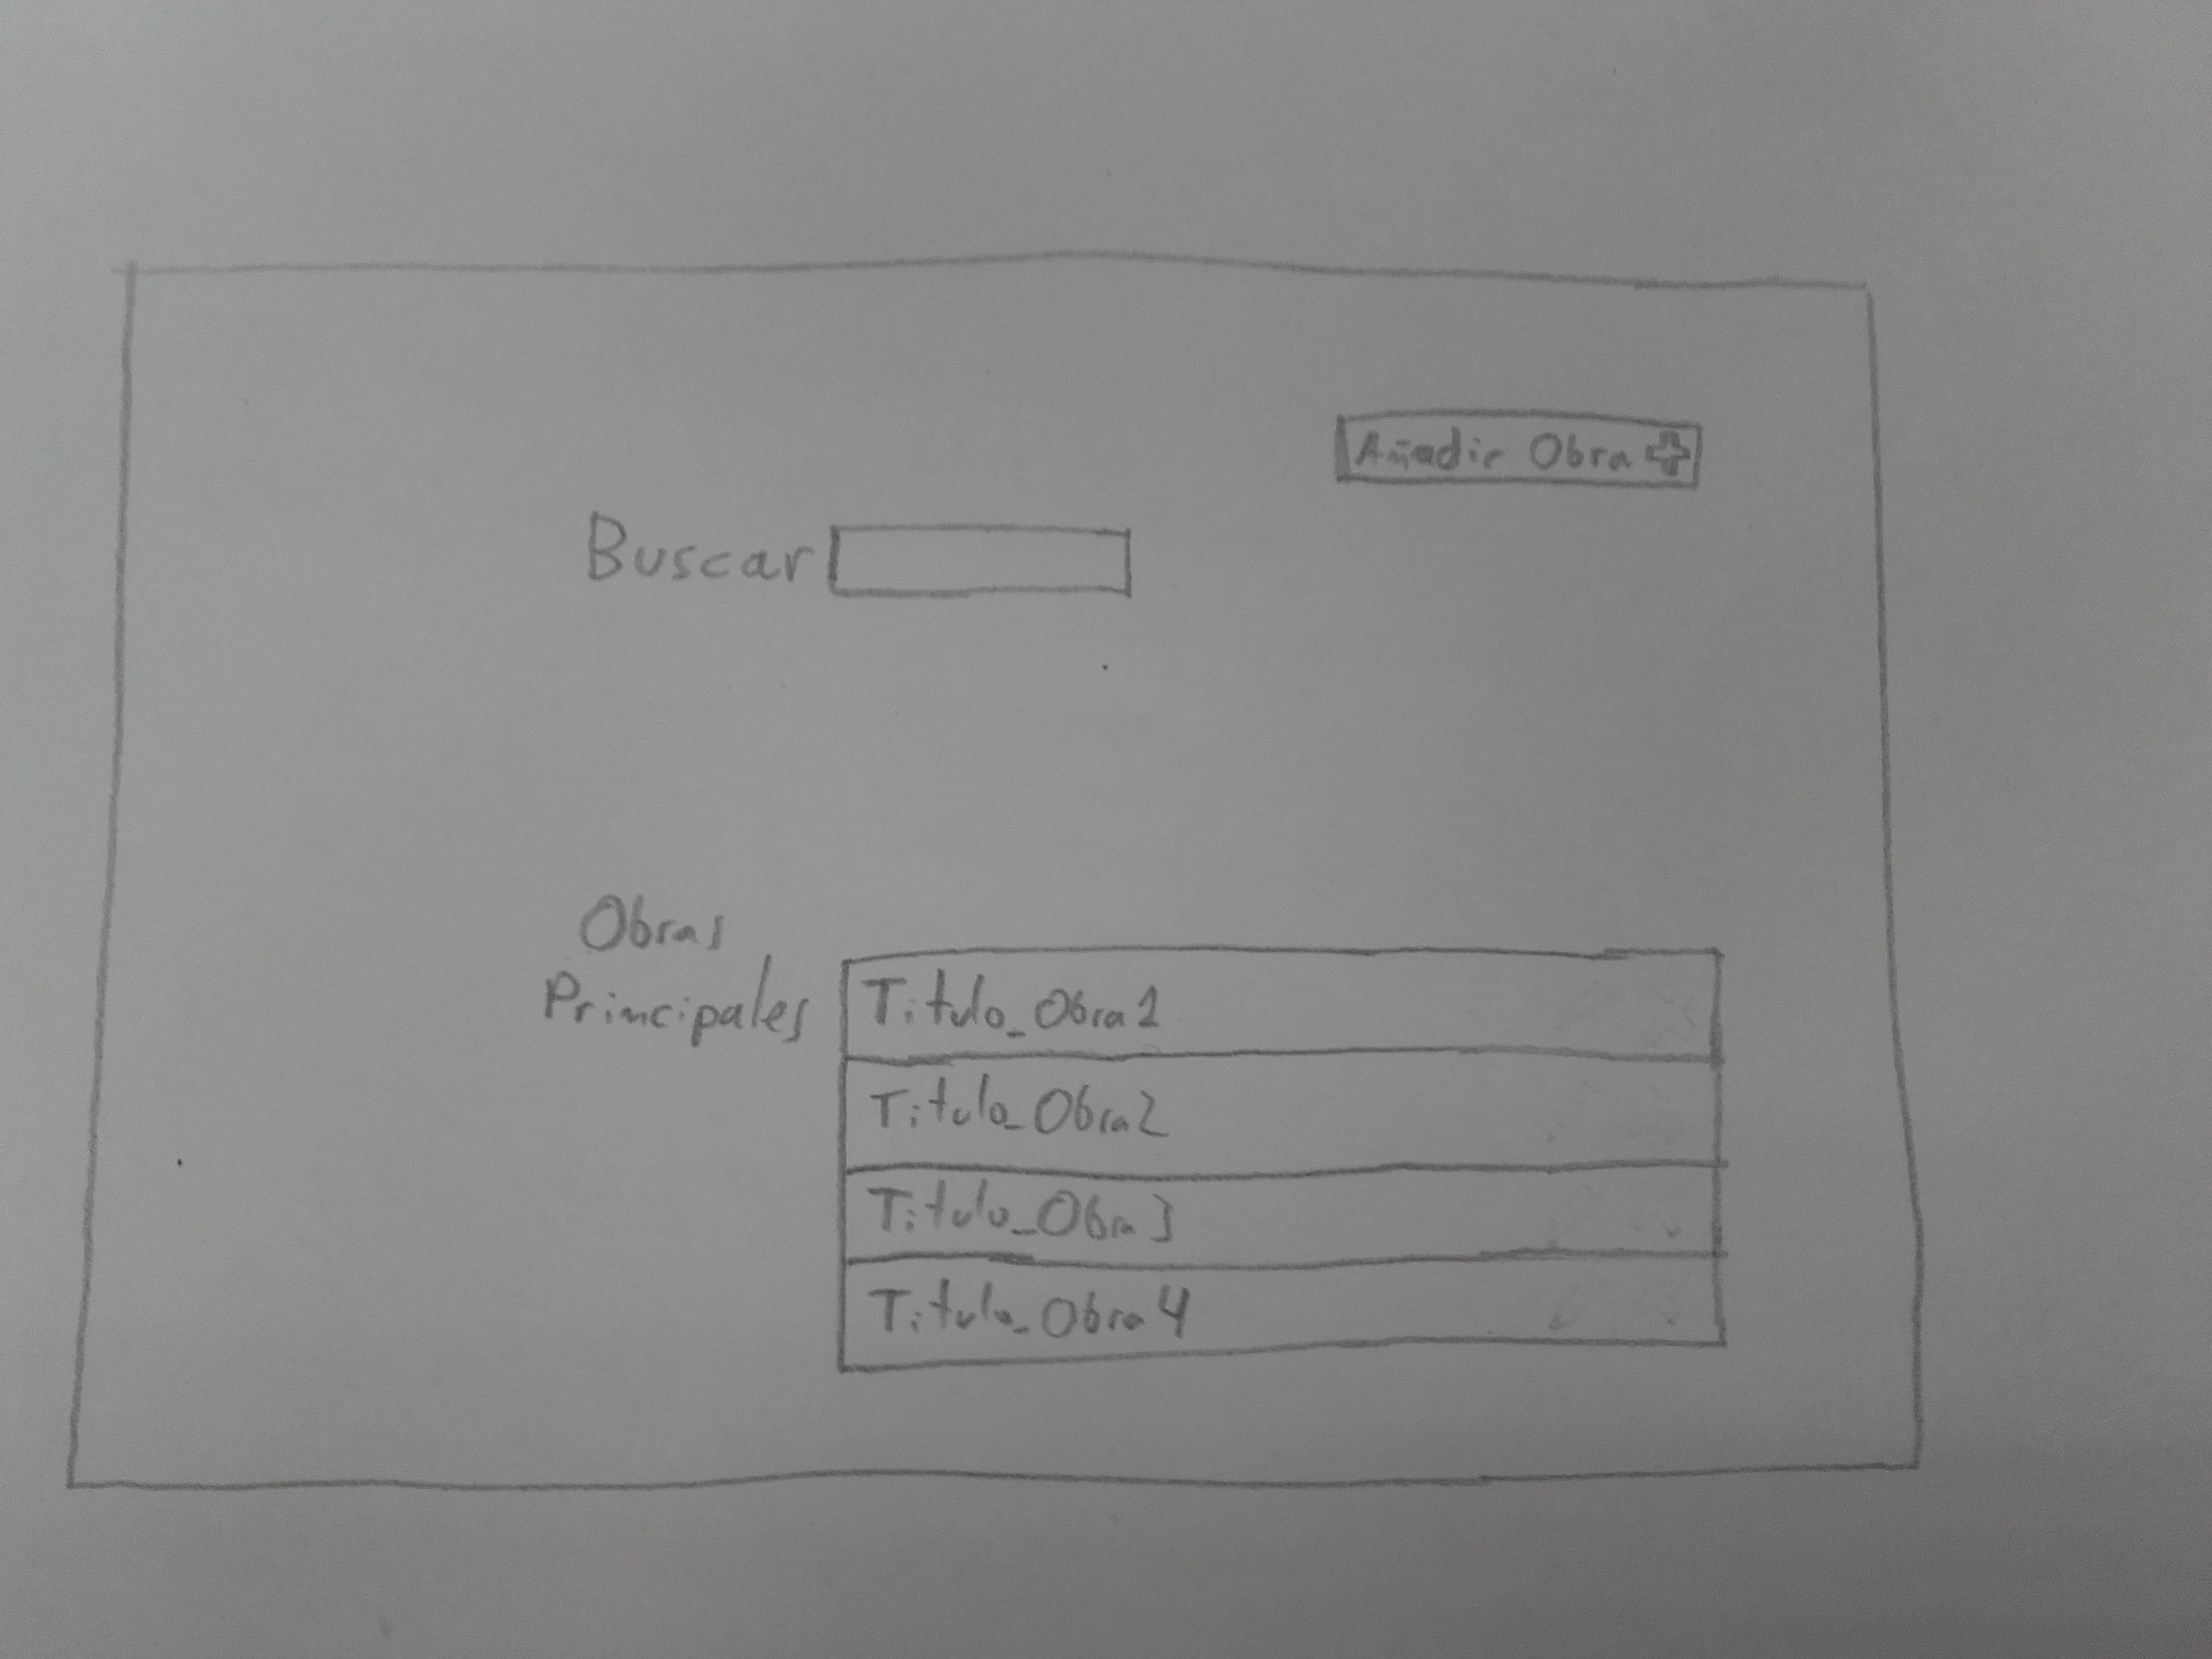 Añadir Obra
Buscar
Obras
Principales
Titulo_Obra1
Titulo_Obra2
Titulo_Obra3
Titulo_Obra4